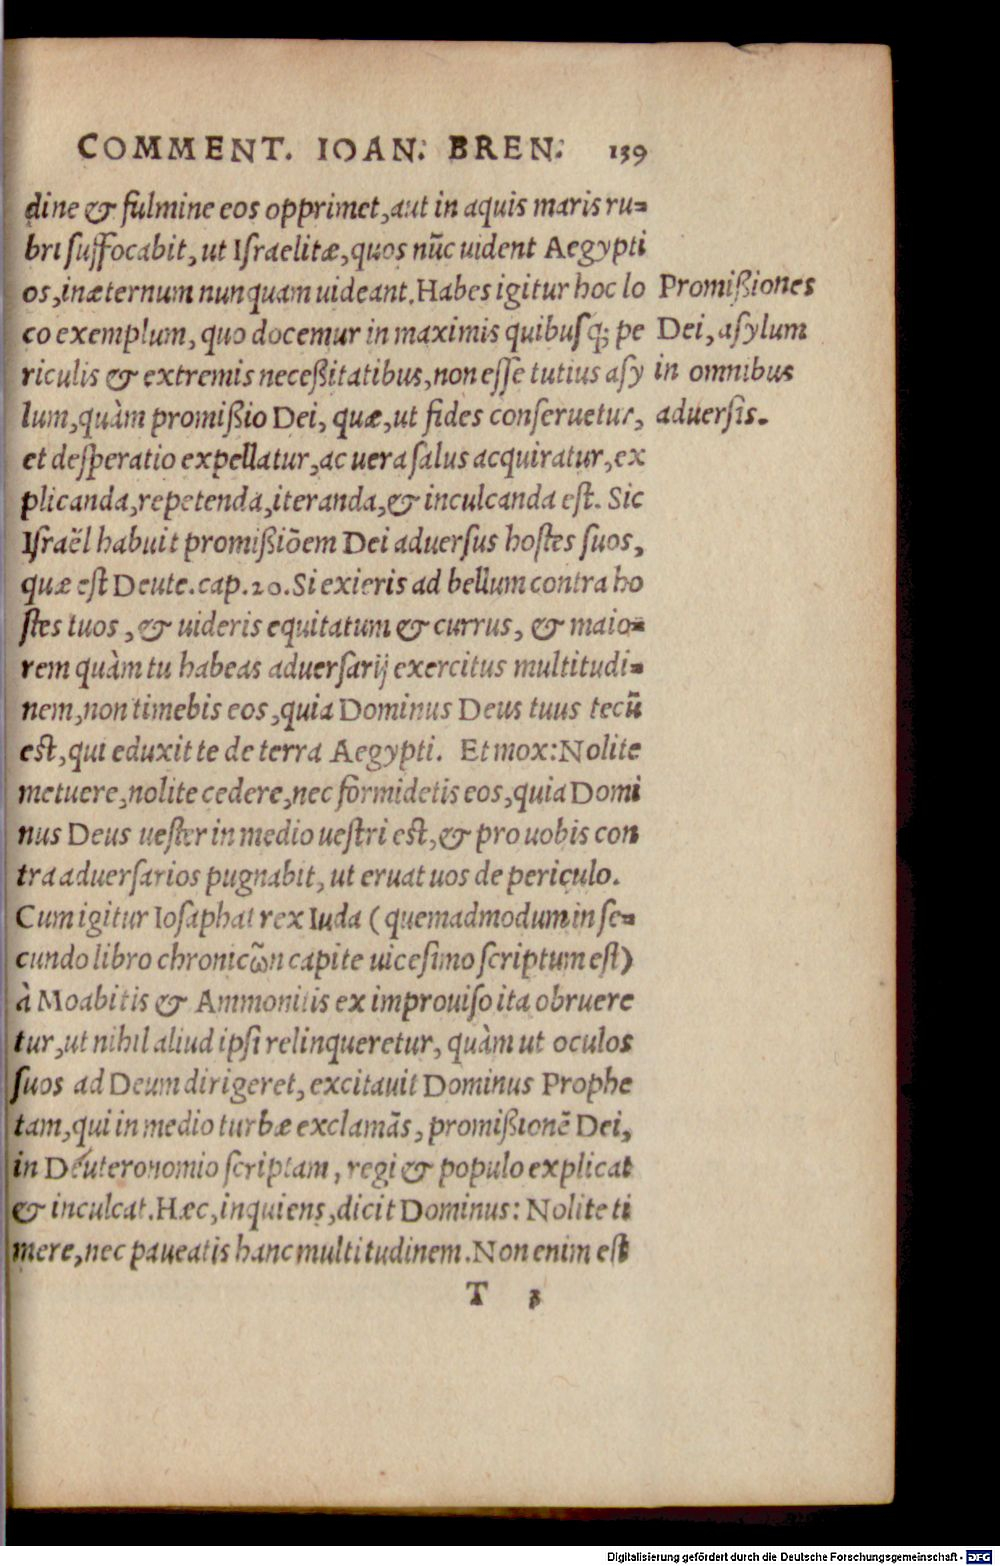 COMMENT. IOAN. BREN. 139
dine & fulmine eos opprimet, aut in aquis maris ru=
bri suffocabit, ut Israelitæ, quos nũc uident Aegypti
os, in æternum nunquam uideant. Habes igitur hoc lo
co exemplum, quo docemur in maximis quibusq; pe
riculis & extremis neceßitatibus, non esse tutius asy
lum, quàm promißio Dei, quæ, ut fides conseruetur,
et desperatio expellatur, ac uera salus acquiratur, ex
plicanda, repetenda, iteranda, & inculcanda est. Sic
Israël habuit promißiõem Dei aduersus hostes suos,
quæ est Deute. cap. 20. Si exieris ad bellum contra ho
stes tuos, & uideris equitatum & currus, & maio=
rem quàm tu habeas aduersarij exercitus multitudi=
nem, non timebis eos, quia Dominus Deus tuus tecũ
est, qui eduxit te de terra Aegypti. Et mox: Nolite
metuere, nolite cedere, nec formidetis eos, quia Domi
nus Deus uester in medio uestri est, & pro uobis con
tra aduersarios pugnabit, ut eruat uos de periculo.
Cum igitur Iosaphat rex Iuda (quemadmodum in se=
cundo libro chronicῶn capite uicesimo scriptum est)
à Moabitis & Ammonitis ex improuiso ita obruere
tur, ut nihil aliud ipsi relinqueretur, quàm ut oculos
suos ad Deum dirigeret, excitauit Dominus Prophe
tam, qui in medio turbæ exclamãs, promißionẽ Dei,
in Deuteronomio scriptam, regi & populo explicat
& inculcat. Hæc, inquiens, dicit Dominus: Nolite ti
mere, nec paueatis hanc multitudinem. Non enim est
T 3
Promißiones
Dei, asylum
in omnibus
aduersis.
Digitalisierung gefördert durch die Deutsche Forschungsgemeinschaft - DFG